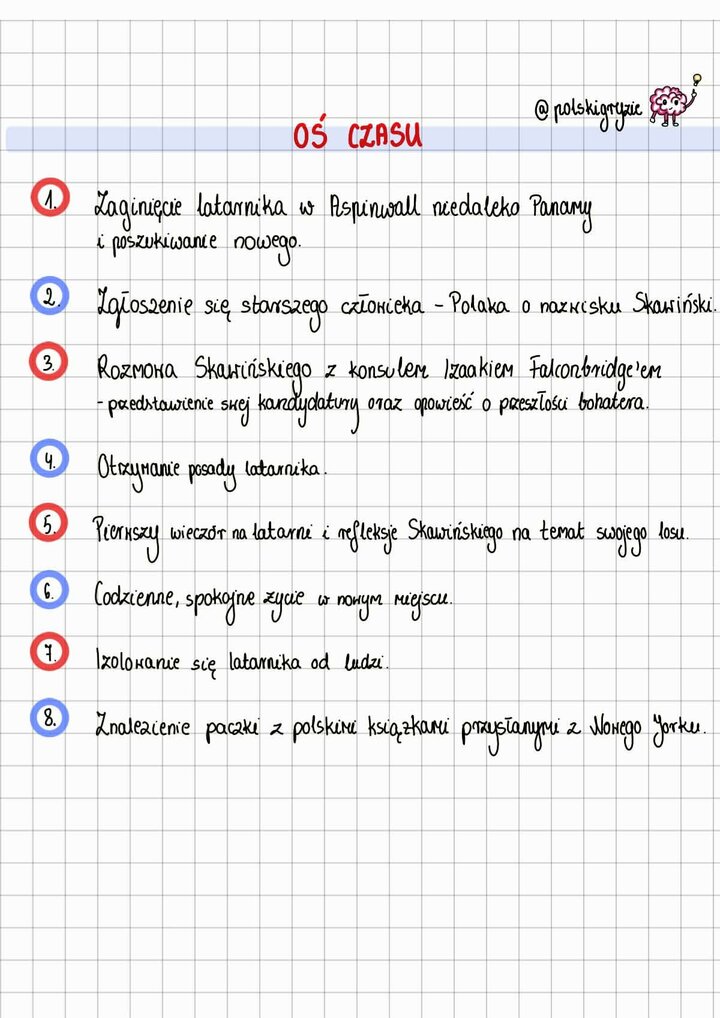 @polskigryzie
OŚ CZASU
1. Zaginięcie latarnika w Aspinwall niedaleko Panamy
i poszukiwanie nowego.
2. Zgłoszenie się starszego człowieka - Polaka o nazwisku Skawiński.
3. Rozmowa Skawińskiego z konsulem Izaakiem Falconbridge'em
- przedstawienie swej kandydatury oraz opowieść o przeszłości bohatera.
4. Otrzymanie posady latarnika.
5. Pierwszy wieczór na latarni i refleksje Skawińskiego na temat swojego losu.
6. Codzienne, spokojne życie w nowym miejscu.
7. Izolowanie się latarnika od ludzi.
8. Znalezienie paczki z polskimi książkami przysłanymi z Nowego Yorku.